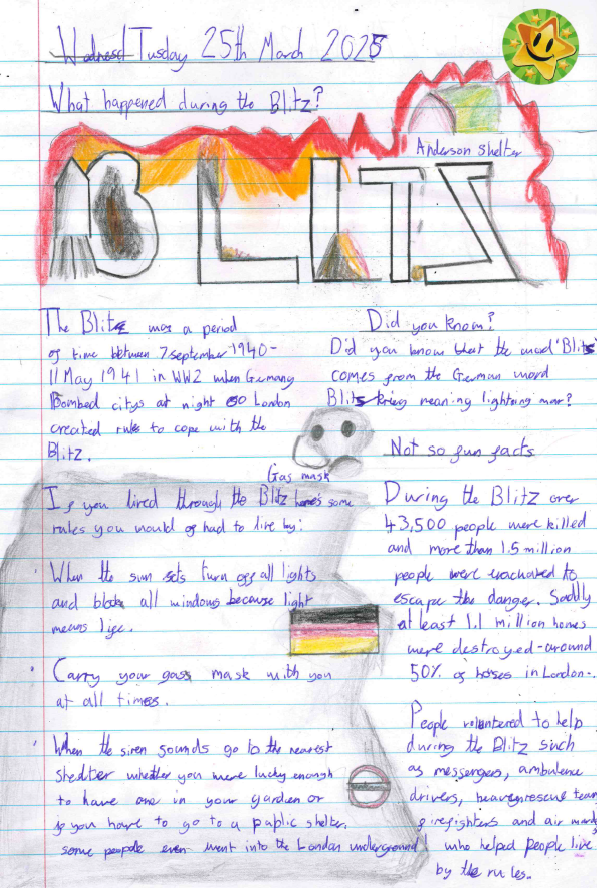 Wednesd Tusday 25th March 2025
What happened during the Blitz?
Anderson shelter
BLITZ
The Blitz was a period
of time between 7 september 1940-
11 May 1941 in WW2 when Germany
Bombed citys at night so London
created rules to cope with the
Blitz.
Gas mask
If you lived through the Blitz here's some
rules you would of had to live by:
When the sun sets turn off all lights
and block all windows because light
means life.
Carry your gass mask with you
at all times.
When the siren sounds go to the nearest
shedlter whether you were lucky enough
to have one in your garden or
if you have to go to a public shelter.
some peopole even went into the London underground!
Did you know?
Did you know that the word "Blits
comes from the German word
Blitskrieg meaning lightning war?
Not so fun facts
During the Blitz over
43,500 people were killed
and more than 1.5 million
people were evacuated to
escape the danger. Sadly
at least 1.1 million homes
were destroyed-around
50% of houses in London-.
People volentered to help
during the Blitz such
as messengers, ambulence
drivers, heavenrescue team
firefighters and air wards
who helped people live
by the rules..